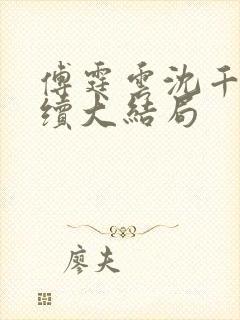 傅霆雲沈千
續大結局
廖夫